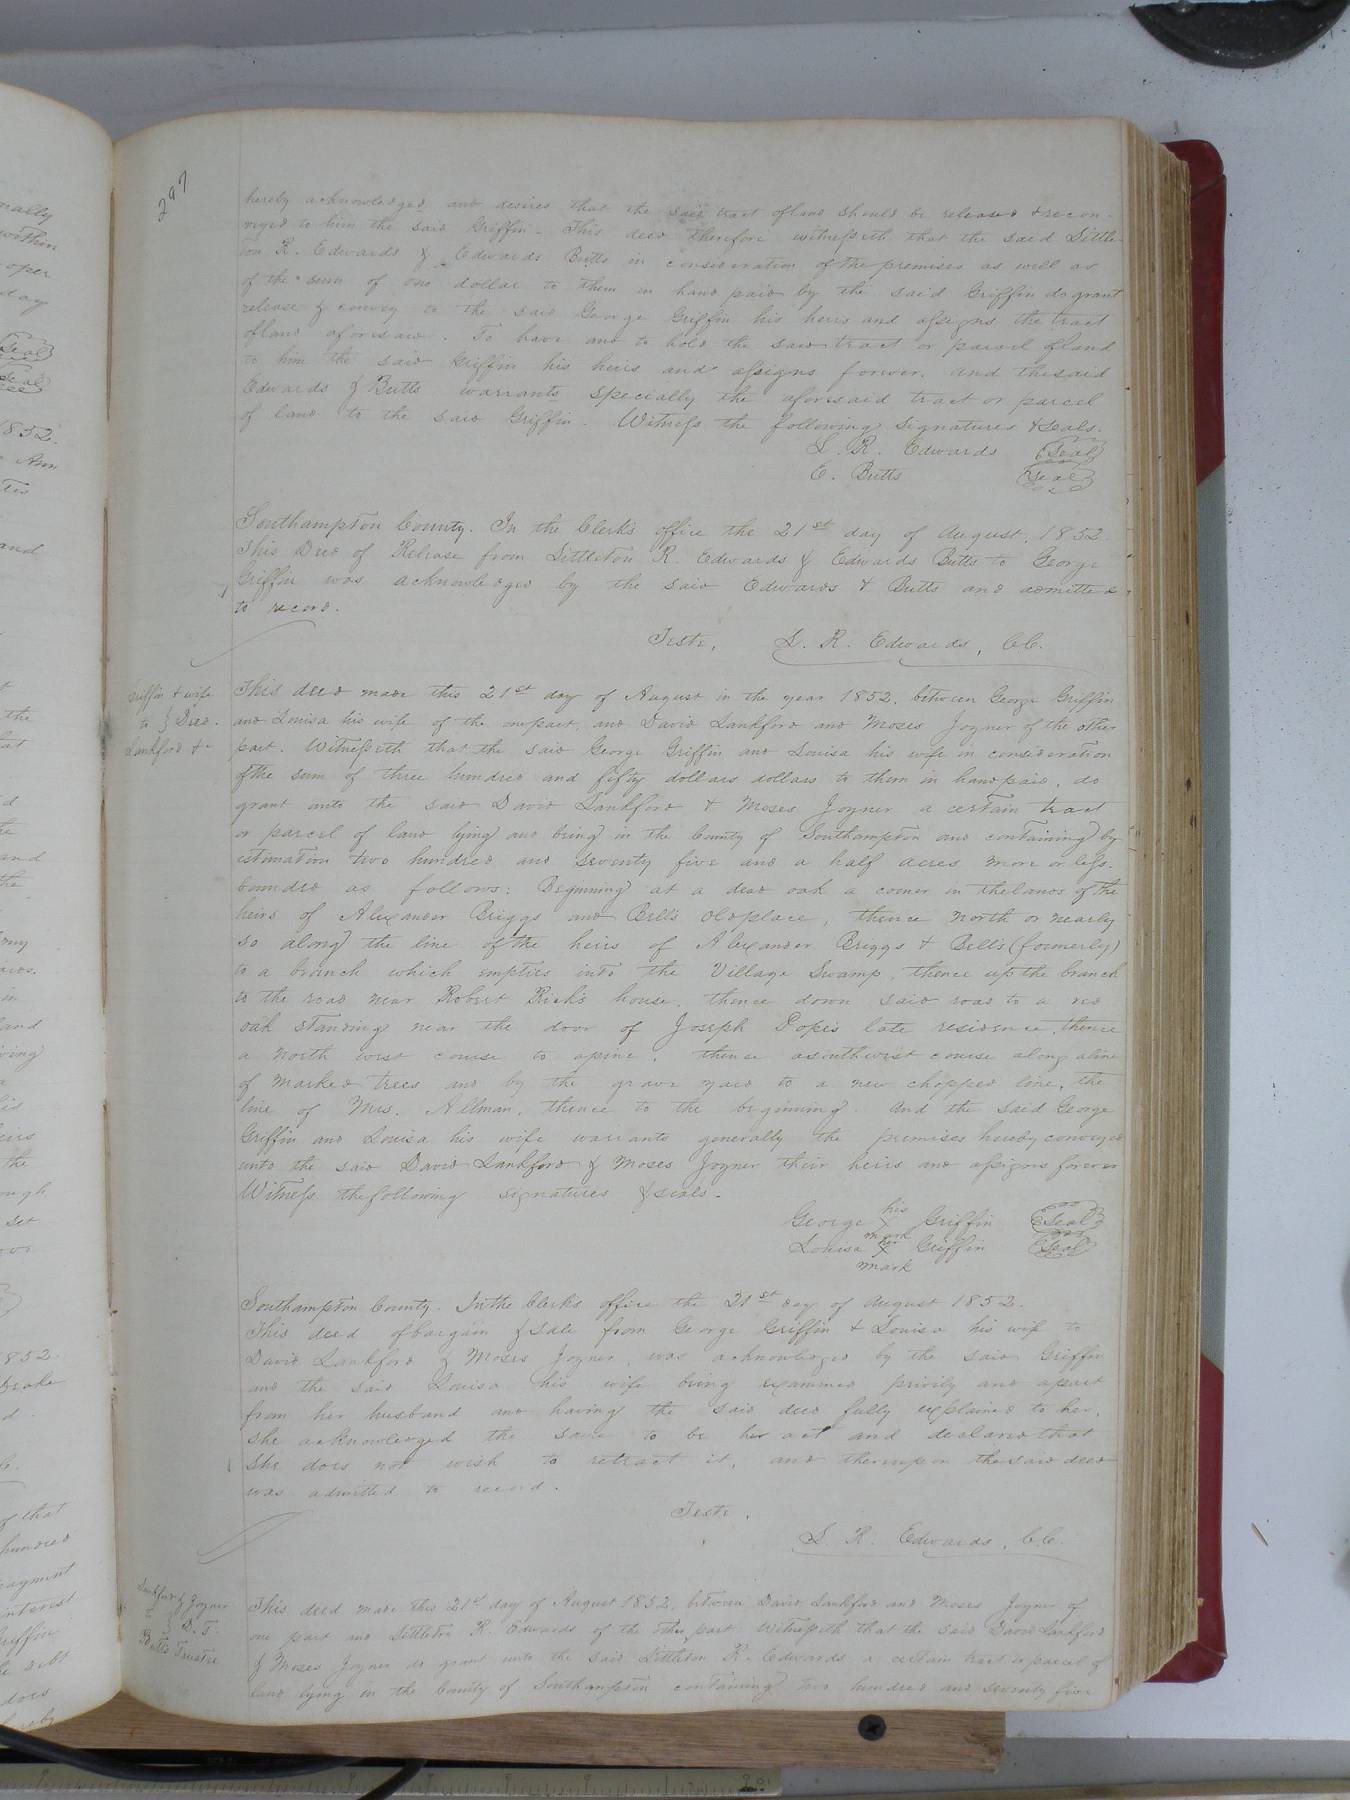 297
hereby acknowledged, and desires that the said tract of land should be released & recon-
veyed to him the said Griffin - This deed therefore witnesseth that the said Little-
ton R. Edwards & Edwards Butts in consideration of the premises as well as
of the sum of one dollar to them in hand paid by the said Griffin do grant
release & convey to the said George Griffin his heirs and assigns the tract
of land aforesaid. To have and to hold the said tract or parcel of land
to him the said Griffin his heirs and assigns forever. and the said
Edwards & Butts warrants specially the aforesaid tract or parcel
of land to the said Griffin. Witness the following signatures & seals.
L. R. Edwards (Seal)
E. Butts (Seal)
Southampton County. In the Clerk's office the 21st day of August, 1852.
This Deed of Release from Littleton R. Edwards & Edwards Butts to George
Griffin was acknowledged by the said Edwards & Butts and admitted
to record.
Teste, L. R. Edwards, C.C.
Griffin & wife
to } Deed.
Lankford &c
This deed made this 21st day of August in the year 1852. between George Griffin
and Louisa his wife of the one part, and David Lankford and Moses Joyner of the other
part. Witnesseth that the said George Griffin and Louisa his wife in consideration
of the sum of three hundred and fifty dollars dollars to them in hand paid, do
grant unto the said David Lankford & Moses Joyner a certain tract
or parcel of land lying and being in the County of Southampton and containing by
estimation two hundred and seventy five and a half acres more or less.
bounded as follows: Beginning at a dead oak a corner in the lands of the
heirs of Alexander Briggs and Bell's old place, thence north or nearly
so along the line of the heirs of Alexander Briggs & Bell's (formerly)
to a branch which empties into the Village Swamp, thence up the branch
to the road near Robert Rick's house, thence down said road to a red
oak standing near the door of Joseph Pope's late residence, thence
a north west course to a pine, thence a southwest course along a line
of marked trees and by the grave yard to a new chopped line, the
line of Mrs. Allman, thence to the beginning. And the said George
Griffin and Louisa his wife warrants generally the premises hereby conveyed
unto the said David Lankford & Moses Joyner their heirs and assigns forever
Witness the following signatures & seals.
his
George X Griffin (Seal)
mark
her
Louisa X Griffin (Seal)
mark
Southampton County. In the Clerk's office the 21st day of August 1852.
This deed of bargain & sale from George Griffin & Louisa his wife to
David Lankford & Moses Joyner, was acknowledged by the said Griffin
and the said Louisa his wife being examined privily and apart
from her husband and having the said deed fully explained to her,
she acknowledged the same to be her act and declared that
she does not wish to retract it, and thereupon the said deed
was admitted to record.
Teste,
L. R. Edwards, C.C.
Lankford & Joyner
to } D. T.
Butts Trustee
This deed made this 21st day of August 1852, between David Lankford and Moses Joyner of
one part and Littleton R. Edwards of the other part Witnesseth that the said David Lankford
& Moses Joyner do grant unto the said Littleton R. Edwards a certain tract or parcel of
land lying in the County of Southampton containing two hundred and seventy five